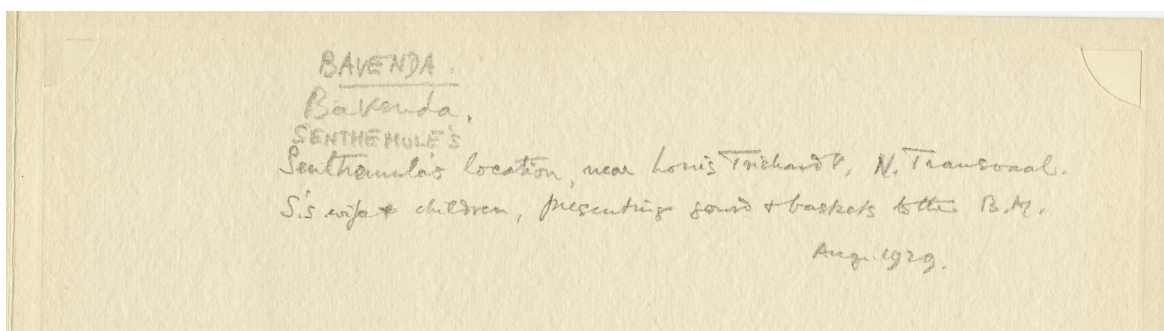 BAVENDA.
Bavenda.
SENTHEMULE'S
Senthemula's location, near Louis Trichardt, N. Transvaal.
S.'s wife & children, presenting gourd & baskets to the B.M.
Aug. 1929.